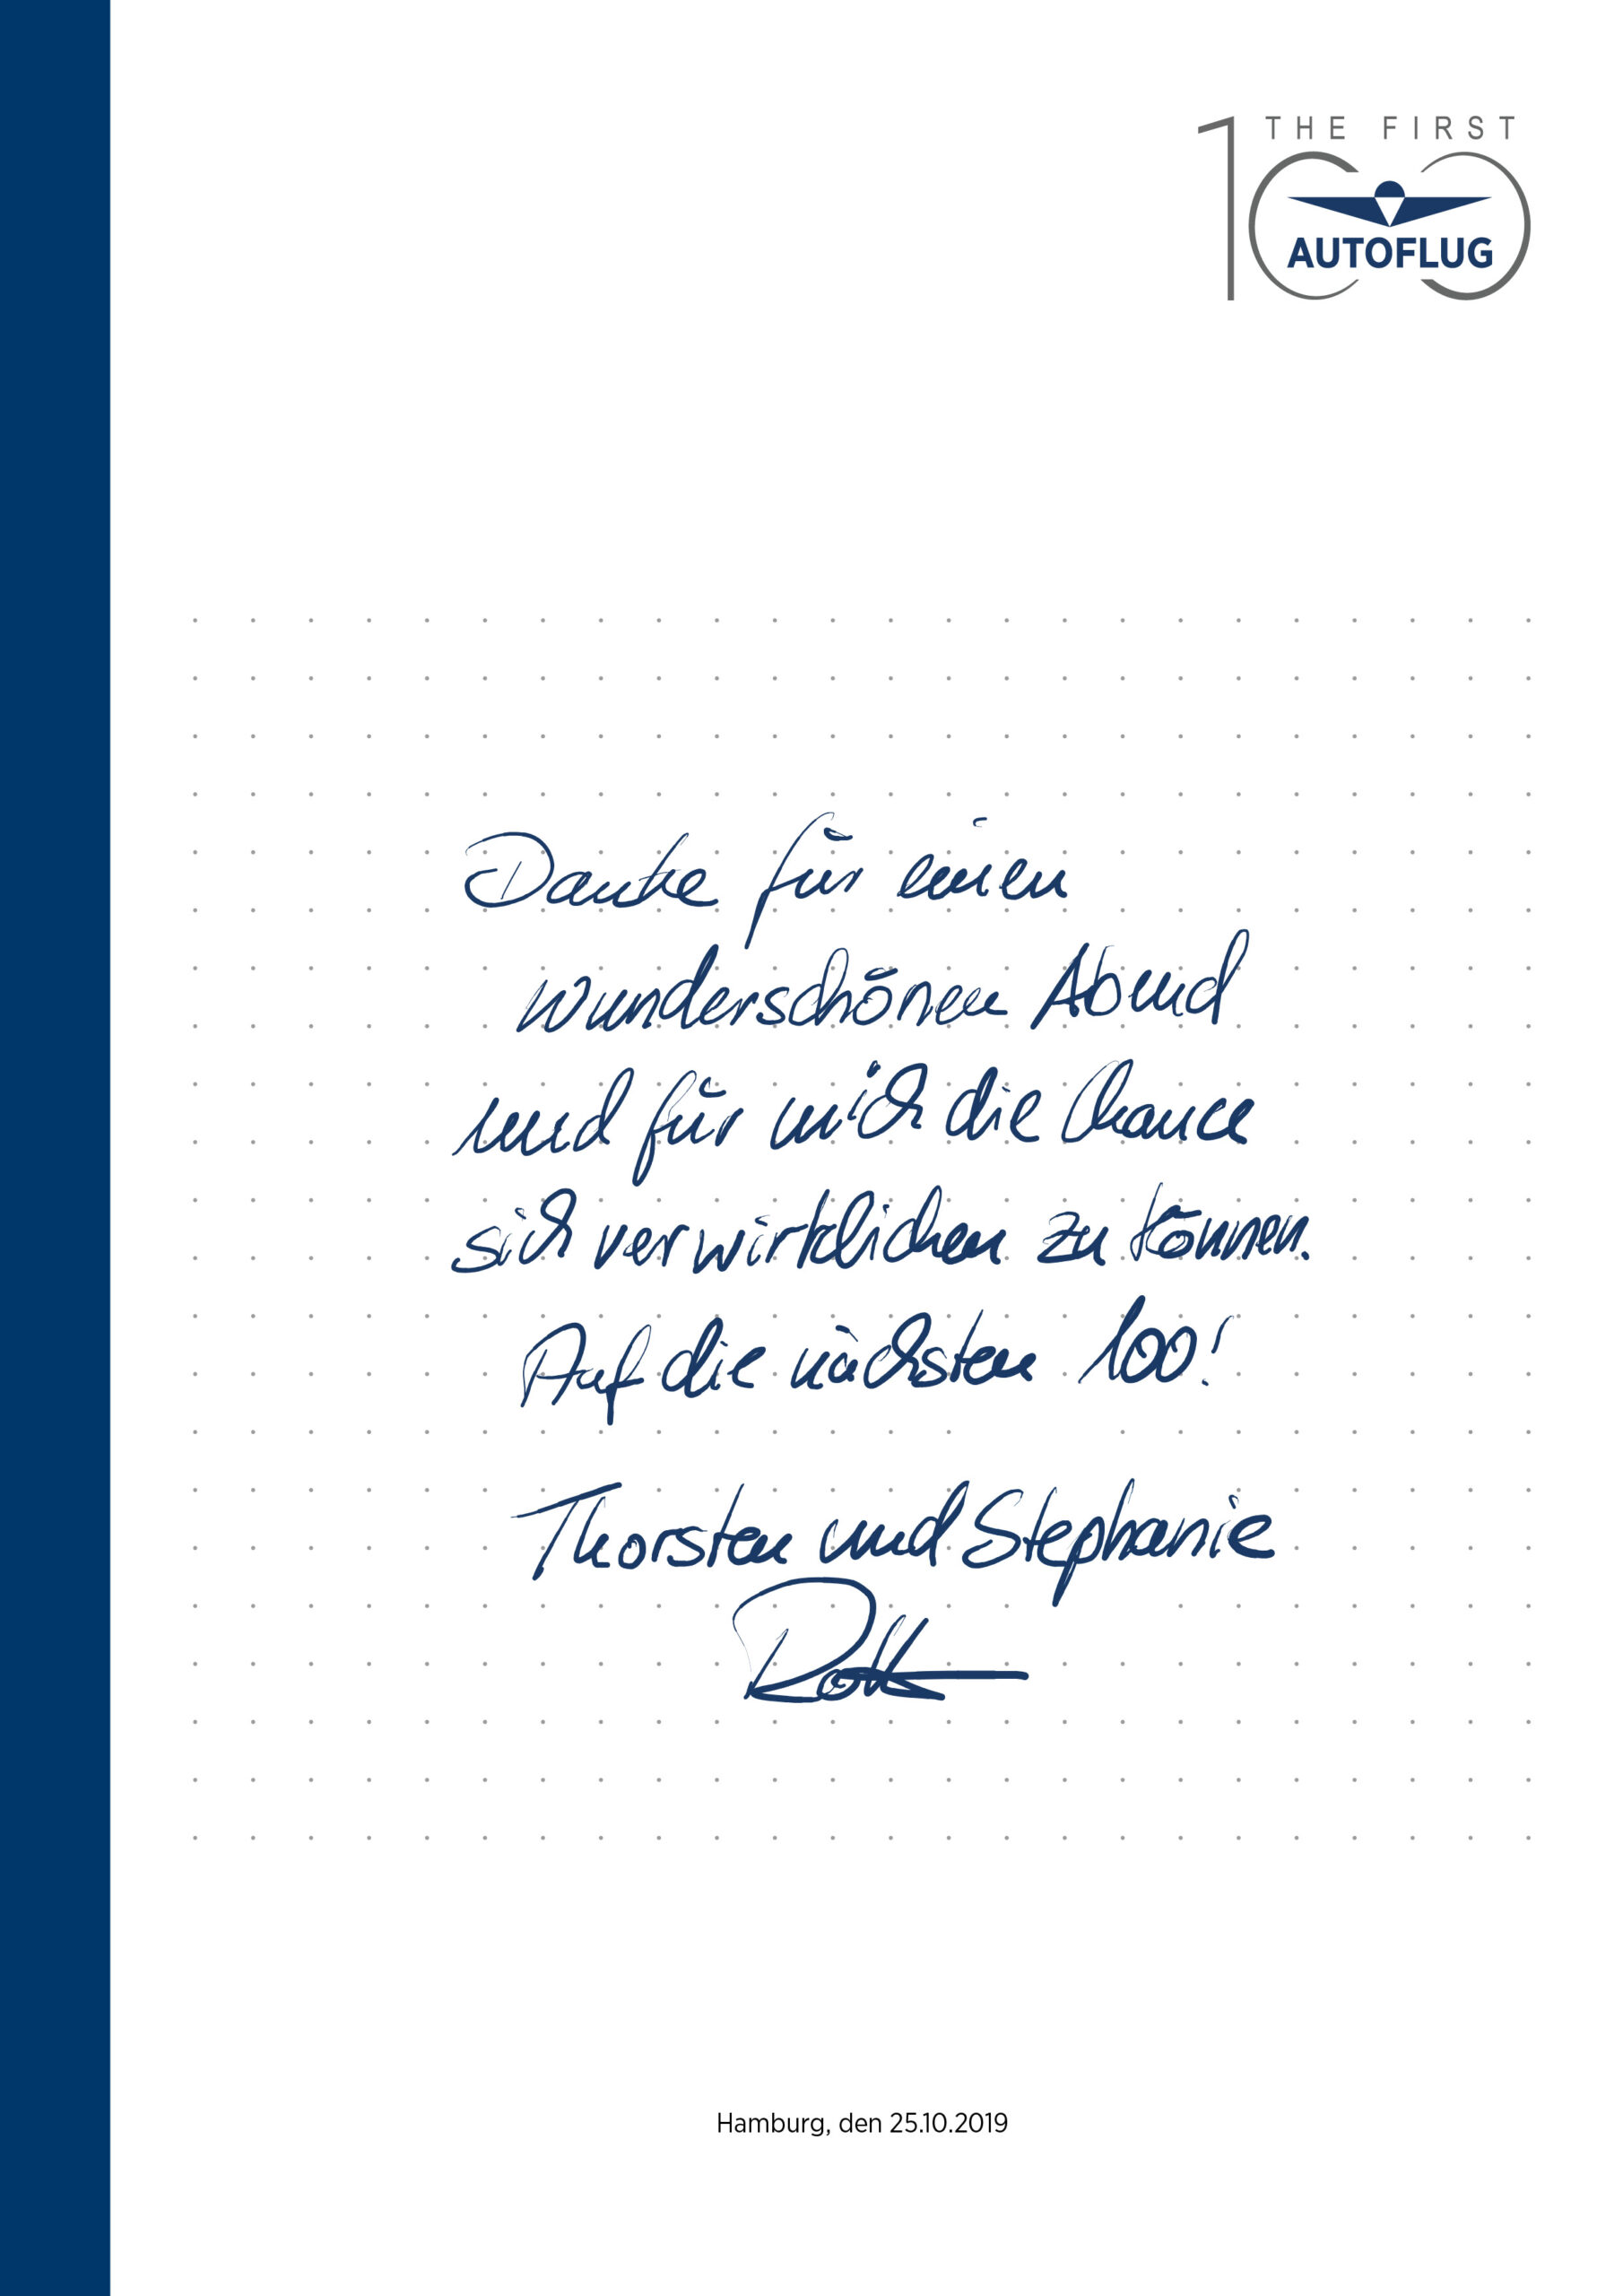 THE FIRST
100
AUTOFLUG
Danke für einen
wunderschönen Abend
und für mich die Chance
sich verwirklichen zu können.
Auf die nächsten 100!
Thorsten und Stephanie
Hamburg, den 25.10.2019